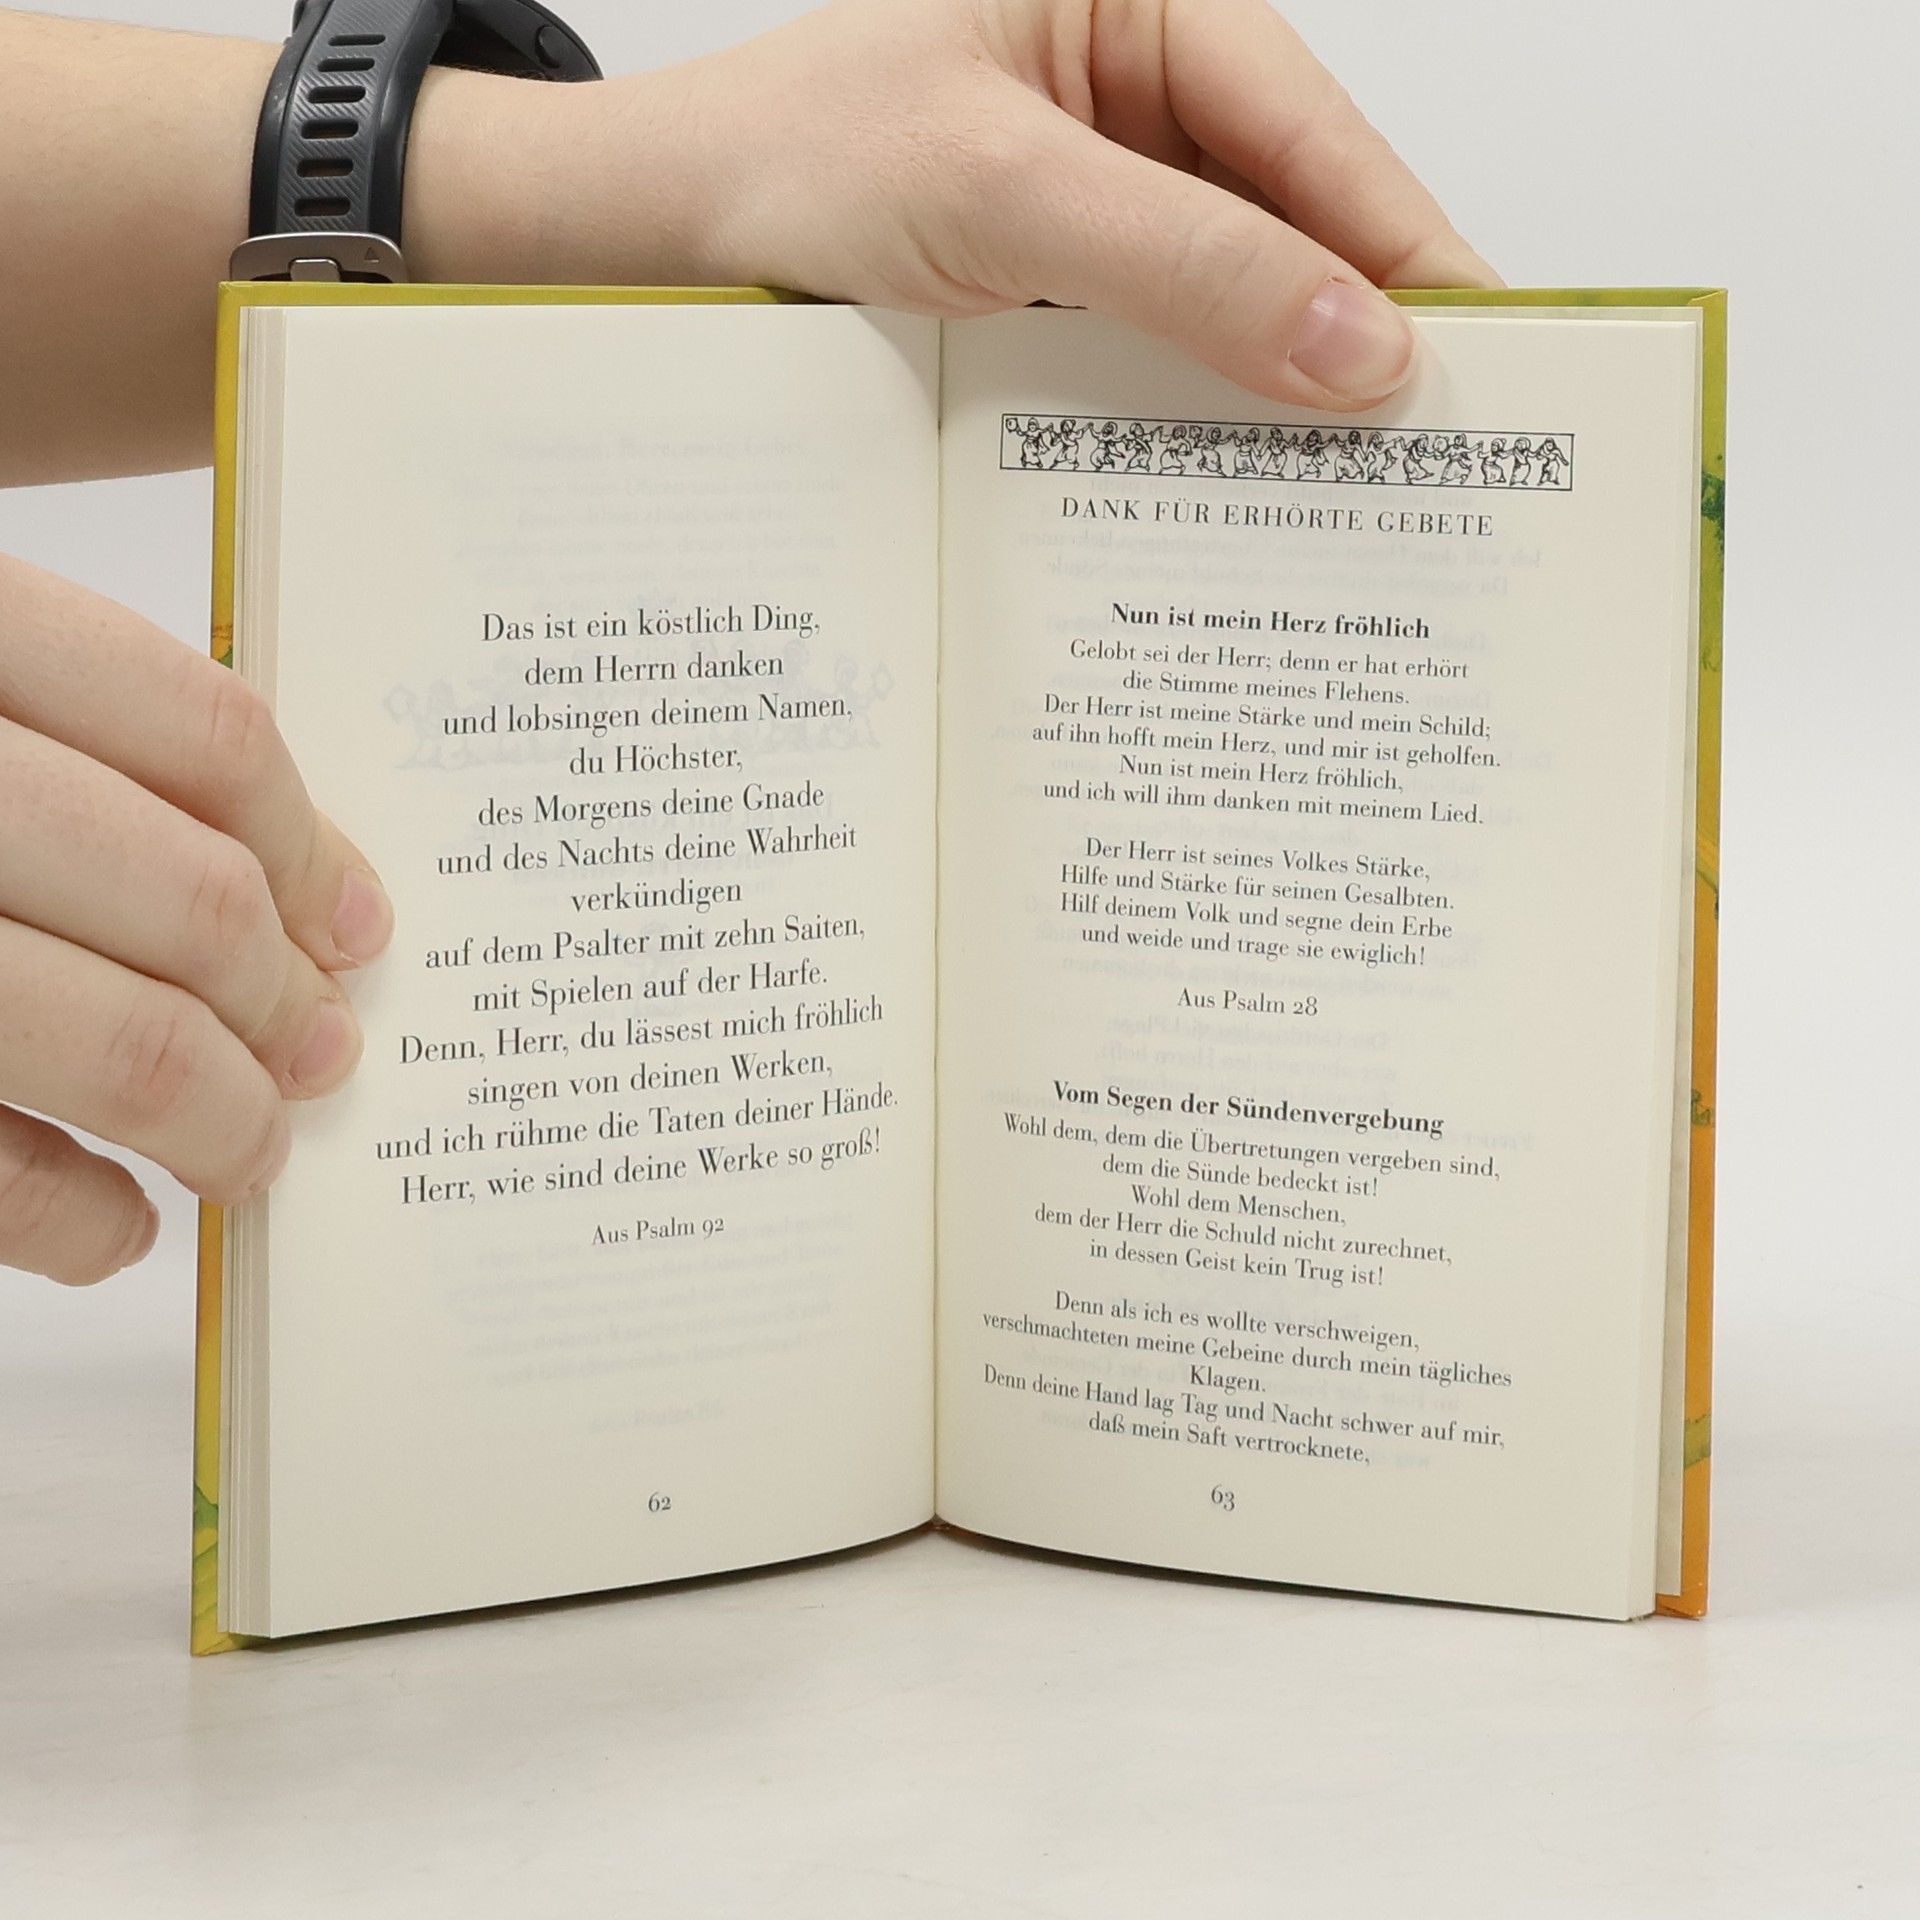 Das ist ein köstlich Ding,
dem Herrn danken
und lobsingen deinem Namen,
du Höchster,
des Morgens deine Gnade
und des Nachts deine Wahrheit
verkündigen
auf dem Psalter mit zehn Saiten,
mit Spielen auf der Harfe.
Denn, Herr, du lässest mich fröhlich
singen von deinen Werken,
und ich rühme die Taten deiner Hände.
Herr, wie sind deine Werke so groß!
Aus Psalm 92
62
DANK FÜR ERHÖRTE GEBETE
Nun ist mein Herz fröhlich
Gelobt sei der Herr; denn er hat erhört
die Stimme meines Flehens.
Der Herr ist meine Stärke und mein Schild;
auf ihn hofft mein Herz, und mir ist geholfen.
Nun ist mein Herz fröhlich,
und ich will ihm danken mit meinem Lied.
Der Herr ist seines Volkes Stärke,
Hilfe und Stärke für seinen Gesalbten.
Hilf deinem Volk und segne dein Erbe
und weide und trage sie ewiglich!
Aus Psalm 28
Vom Segen der Sündenvergebung
Wohl dem, dem die Übertretungen vergeben sind,
dem die Sünde bedeckt ist!
Wohl dem Menschen,
dem der Herr die Schuld nicht zurechnet,
in dessen Geist kein Trug ist!
Denn als ich es wollte verschweigen,
verschmachteten meine Gebeine durch mein tägliches
Klagen.
Denn deine Hand lag Tag und Nacht schwer auf mir,
daß mein Saft vertrocknete,
63